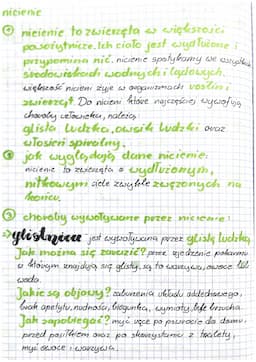 nicienie
① nicienie to zwierzęta w większości
pasożytnicze. Ich ciało jest wydłużone i
przypomina nić. nicienie spotykamy we wszystkich
środowiskach wodnych i lądowych.
większość nicieni żyje w organizmach roślin i
zwierząt. Do nicieni które najczęściej wywołują
choroby człowieka, należą
glista ludzka, owsik ludzki oraz
włosień spiralny.
② jak wyglądają dane nicienie:
nicienie to zwierzęta o wydłużonym,
nitkowatym ciele zwykle zwężonych na
końcu.
③ choroby wywoływane przez nicienie:
glistnica jest wywoływana przez glistę ludzką,
Jak można się zarazić? przez zjedzenie pokarmu
w którym znajdują się glisty, są to warzywa, owoce lub
woda.
Jakie są objawy? zaburzenia układu oddechowego,
brak apetytu, nudności, biegunka, wymioty, bóle brzucha.
Jak zapobiegać? myć ręce po powrocie do domu,
przed posiłkiem oraz po skorzystaniu z toalety,
myć owoce i warzywa.